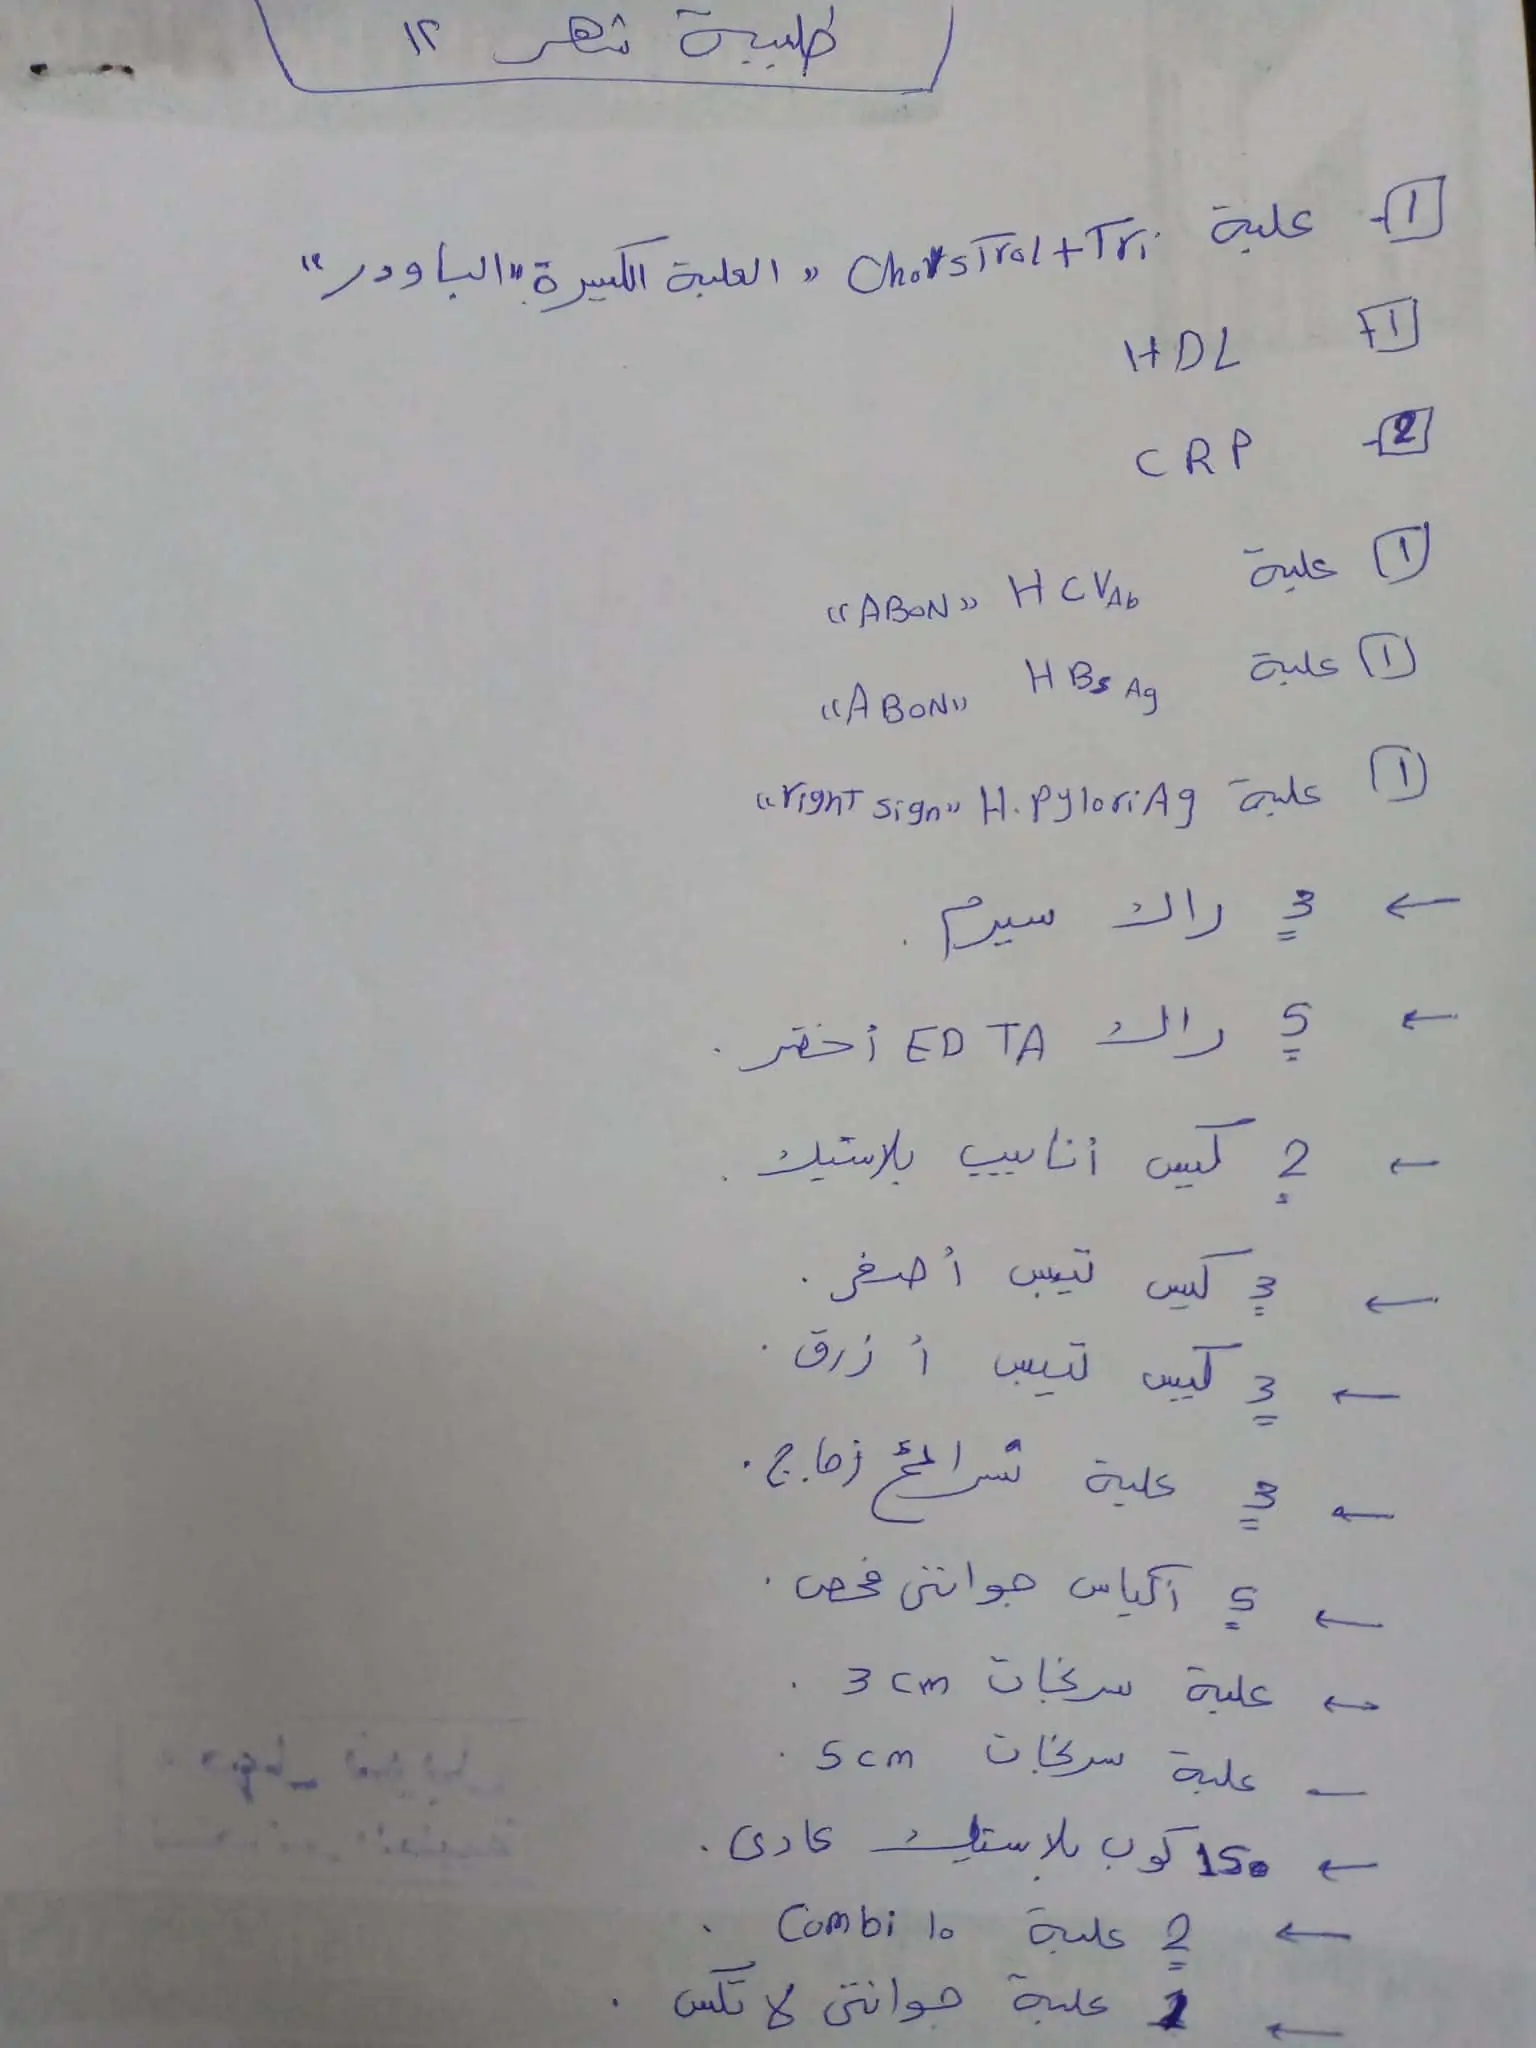 طلبية شهر ١٢
1- علبة Cholestrol + Tri "العلبة الكبيرة" "الباودر"
1- HDL
2- CRP
1 علبة HCV Ab "ABON"
1 علبة HBs Ag "ABON"
1 علبة H.Pylori Ag "right sign"
← 3 راك سيرم .
← 5 راك EDTA أخضر .
← 2 كيس أنابيب بلاستيك .
← 3 كيس تيبس أصفر .
← 3 كيس تيبس أزرق .
← 3 علبة شرائح زجاج .
← 5 أكياس جوانتى فحص .
← علبة سرنجات 3 cm .
← علبة سرنجات 5 cm .
← 150 كوب بلاستيك عادى .
← 2 علبة Combi 10 .
← 1 علبة جوانتى لاتكس .